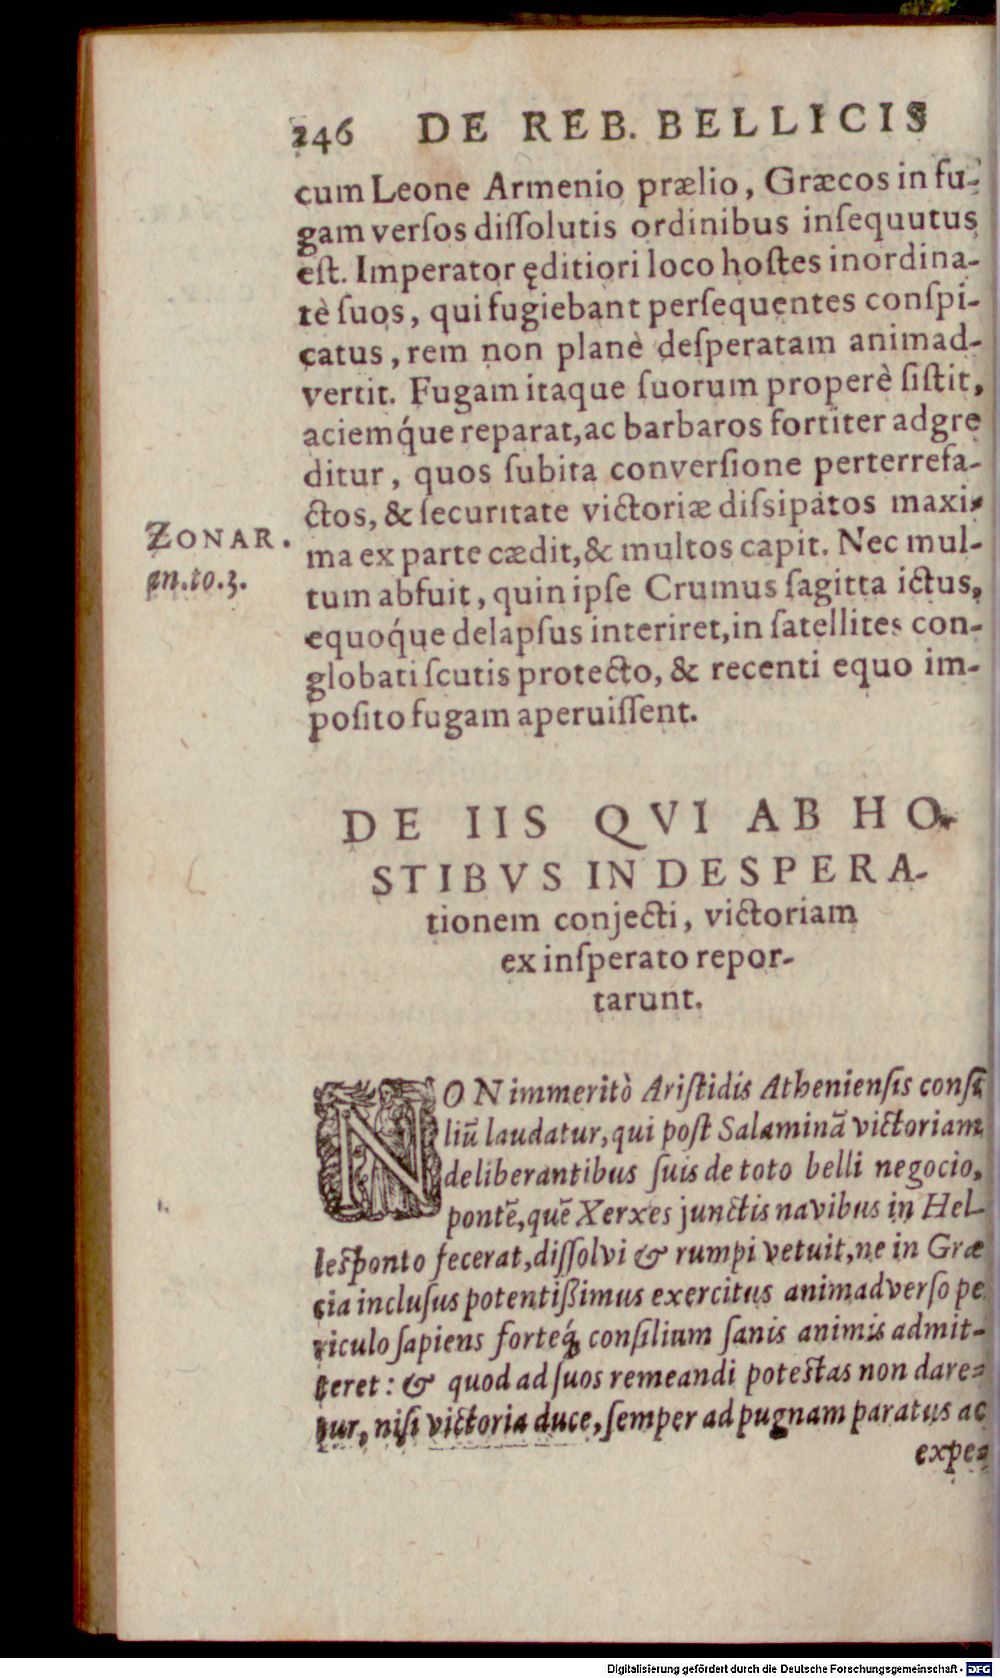 246 DE REB. BELLICIS
cum Leone Armenio prælio, Græcos in fu-
gam verſos diſſolutis ordinibus inſequutus
eſt. Imperator ęditiori loco hoſtes inordina-
tè ſuos, qui fugiebant perſequentes conſpi-
catus, rem non planè deſperatam animad-
vertit. Fugam itaque ſuorum properè ſiſtit,
aciemq́ue reparat, ac barbaros fortiter adgre
ditur, quos ſubita converſione perterrefa-
ctos, & ſecuritate victoriæ diſsipatos maxi-
ma ex parte cædit, & multos capit. Nec mul-
tum abfuit, quin ipſe Crumus ſagitta ictus,
equoq́ue delapſus interiret, in ſatellites con-
globati ſcutis protecto, & recenti equo im-
poſito fugam aperuiſſent.
ZONAR.
an.to.3.
DE IIS QVI AB HO-
STIBVS IN DESPERA-
tionem conjecti, victoriam
ex inſperato repor-
tarunt.
NON immeritò Ariſtidis Athenienſis conſi
liū laudatur, qui poſt Salaminā victoriam
deliberantibus ſuis de toto belli negocio,
pontē, quē Xerxes junctis navibus in Hel-
leſponto fecerat, diſſolvi & rumpi vetuit, ne in Græ
cia incluſus potentiſsimus exercitus animadverſo pe
riculo ſapiens forteq́; conſilium ſanis animis admit-
teret: & quod ad ſuos remeandi poteſtas non dare-
tur, niſi victoria duce, ſemper ad pugnam paratus ac
expe-
Digitalisierung gefördert durch die Deutsche Forschungsgemeinschaft - DFG